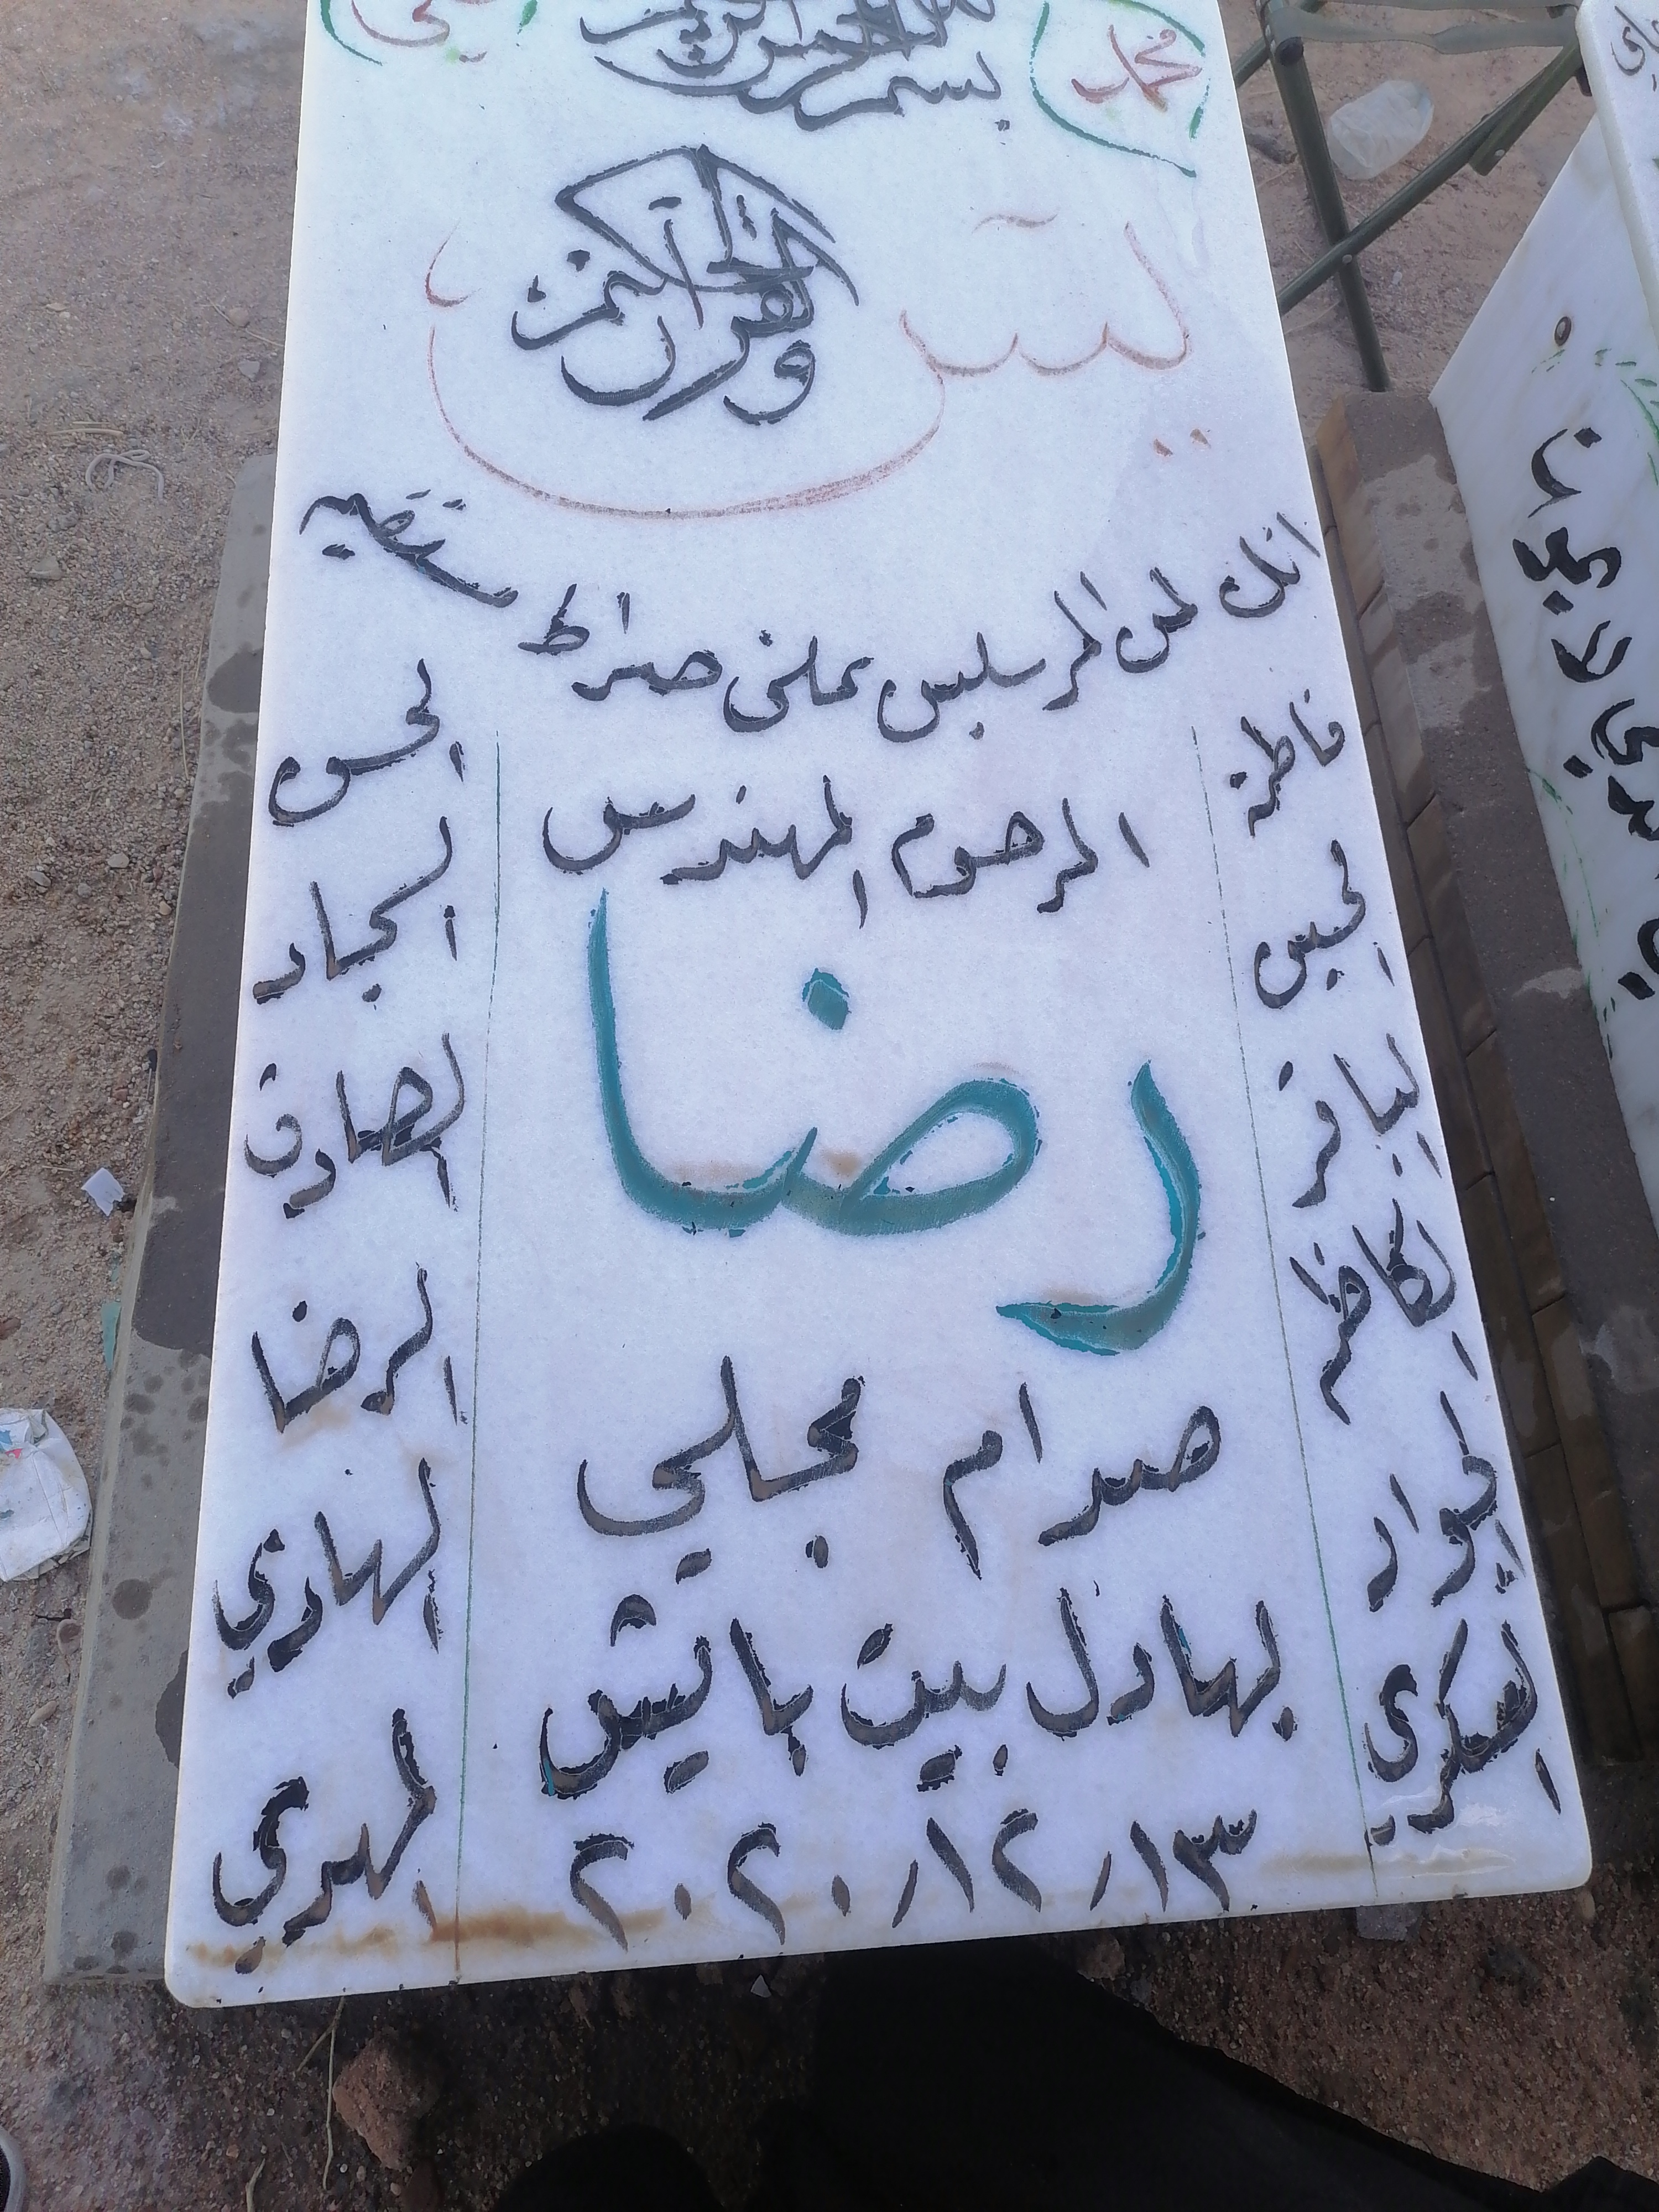 محمد
علي
بسم الله الرحمن الرحيم
يس
والقرآن الحكيم
انك لمن المرسلين على صراط مستقيم
المرحوم المهندس
رضا
صدام مجلي
بهادل بيت بايش
١٣/١٢/٢٠٢٠
فاطمة
الحسين
الباقر
الكاظم
الجواد
العسكري
الحسن
السجاد
الصادق
الرضا
الهادي
المهدي